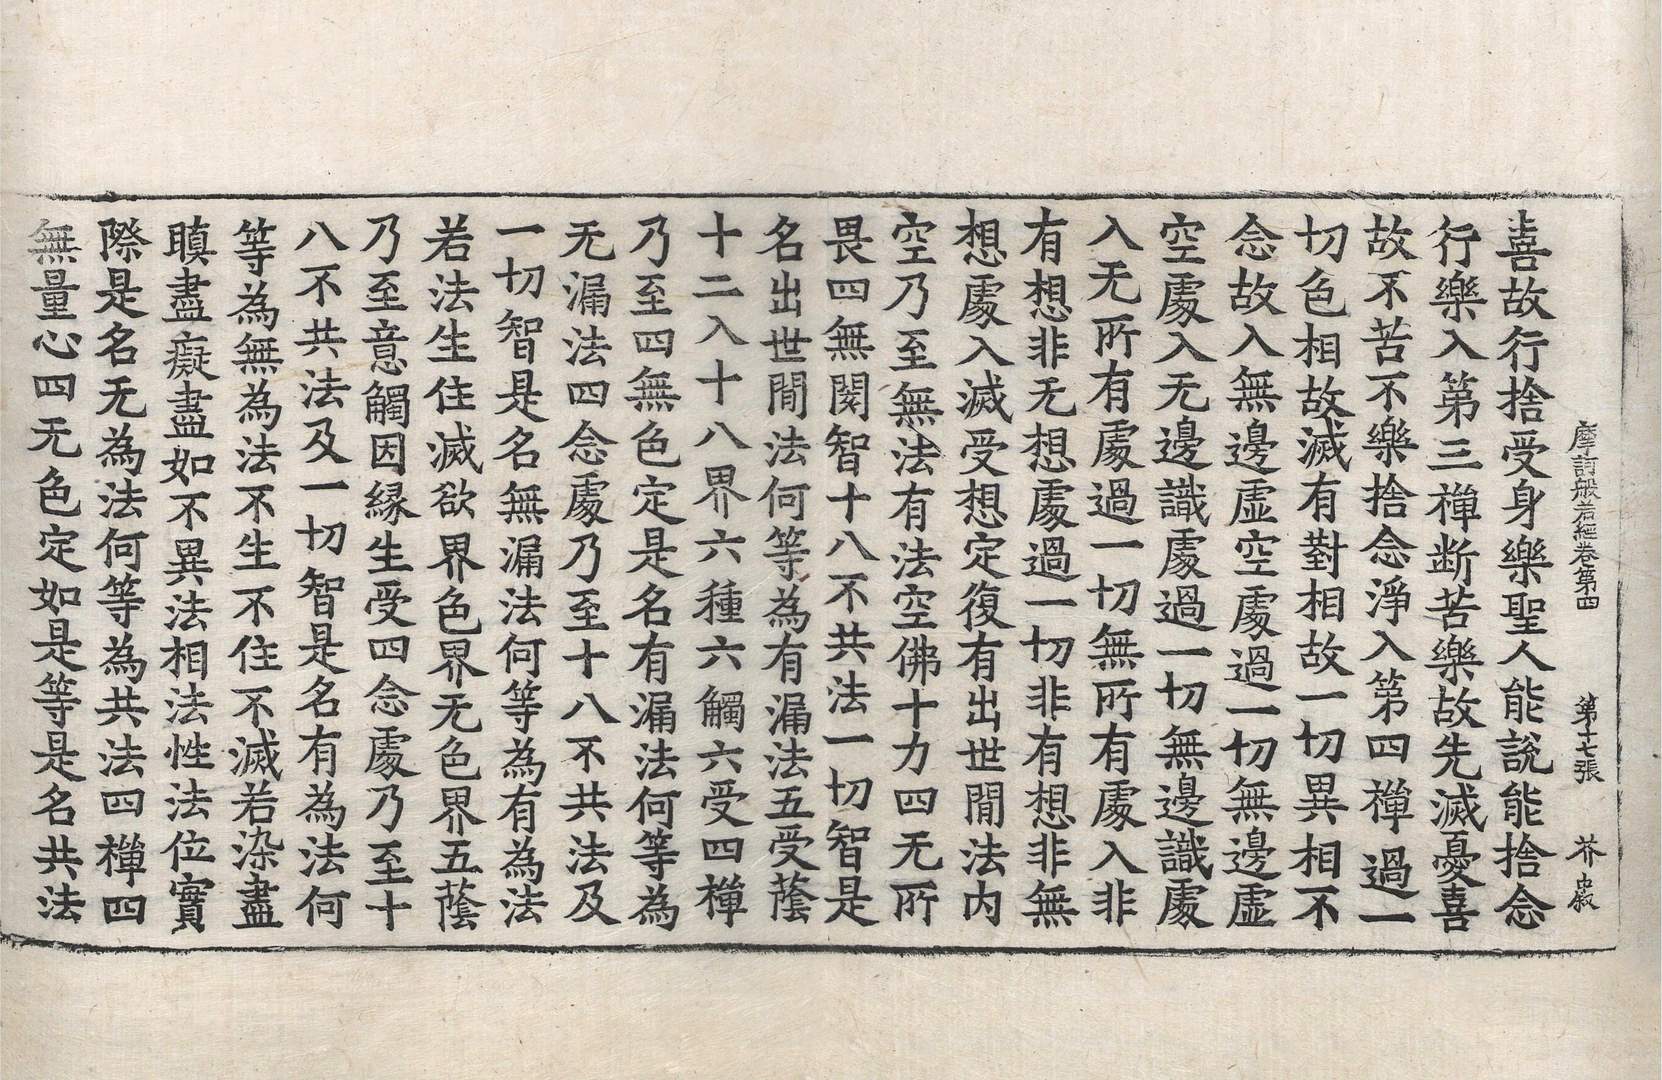 摩訶般若經卷第四 第十七張 芥
喜故行捨受身樂聖人能說能捨念
行樂入第三禪断苦樂故先滅憂喜
故不苦不樂捨念淨入第四禪過一
切色相故滅有對相故一切異相不
念故入無邊虛空處過一切無邊虛
空處入无邊識處過一切無邊識處
入无所有處過一切無所有處入非
有想非无想處過一切非有想非無
想處入滅受想定復有出世間法内
空乃至無法有法空佛十力四无所
畏四無閡智十八不共法一切智是
名出世間法何等為有漏法五受蔭
十二入十八界六種六觸六受四禪
乃至四無色定是名有漏法何等為
无漏法四念處乃至十八不共法及
一切智是名無漏法何等為有為法
若法生住滅欲界色界无色界五蔭
乃至意觸因緣生受四念處乃至十
八不共法及一切智是名有為法何
等為無為法不生不住不滅若染盡
瞋盡癡盡如不異法相法性法位實
際是名无為法何等為共法四禪四
無量心四无色定如是等是名共法